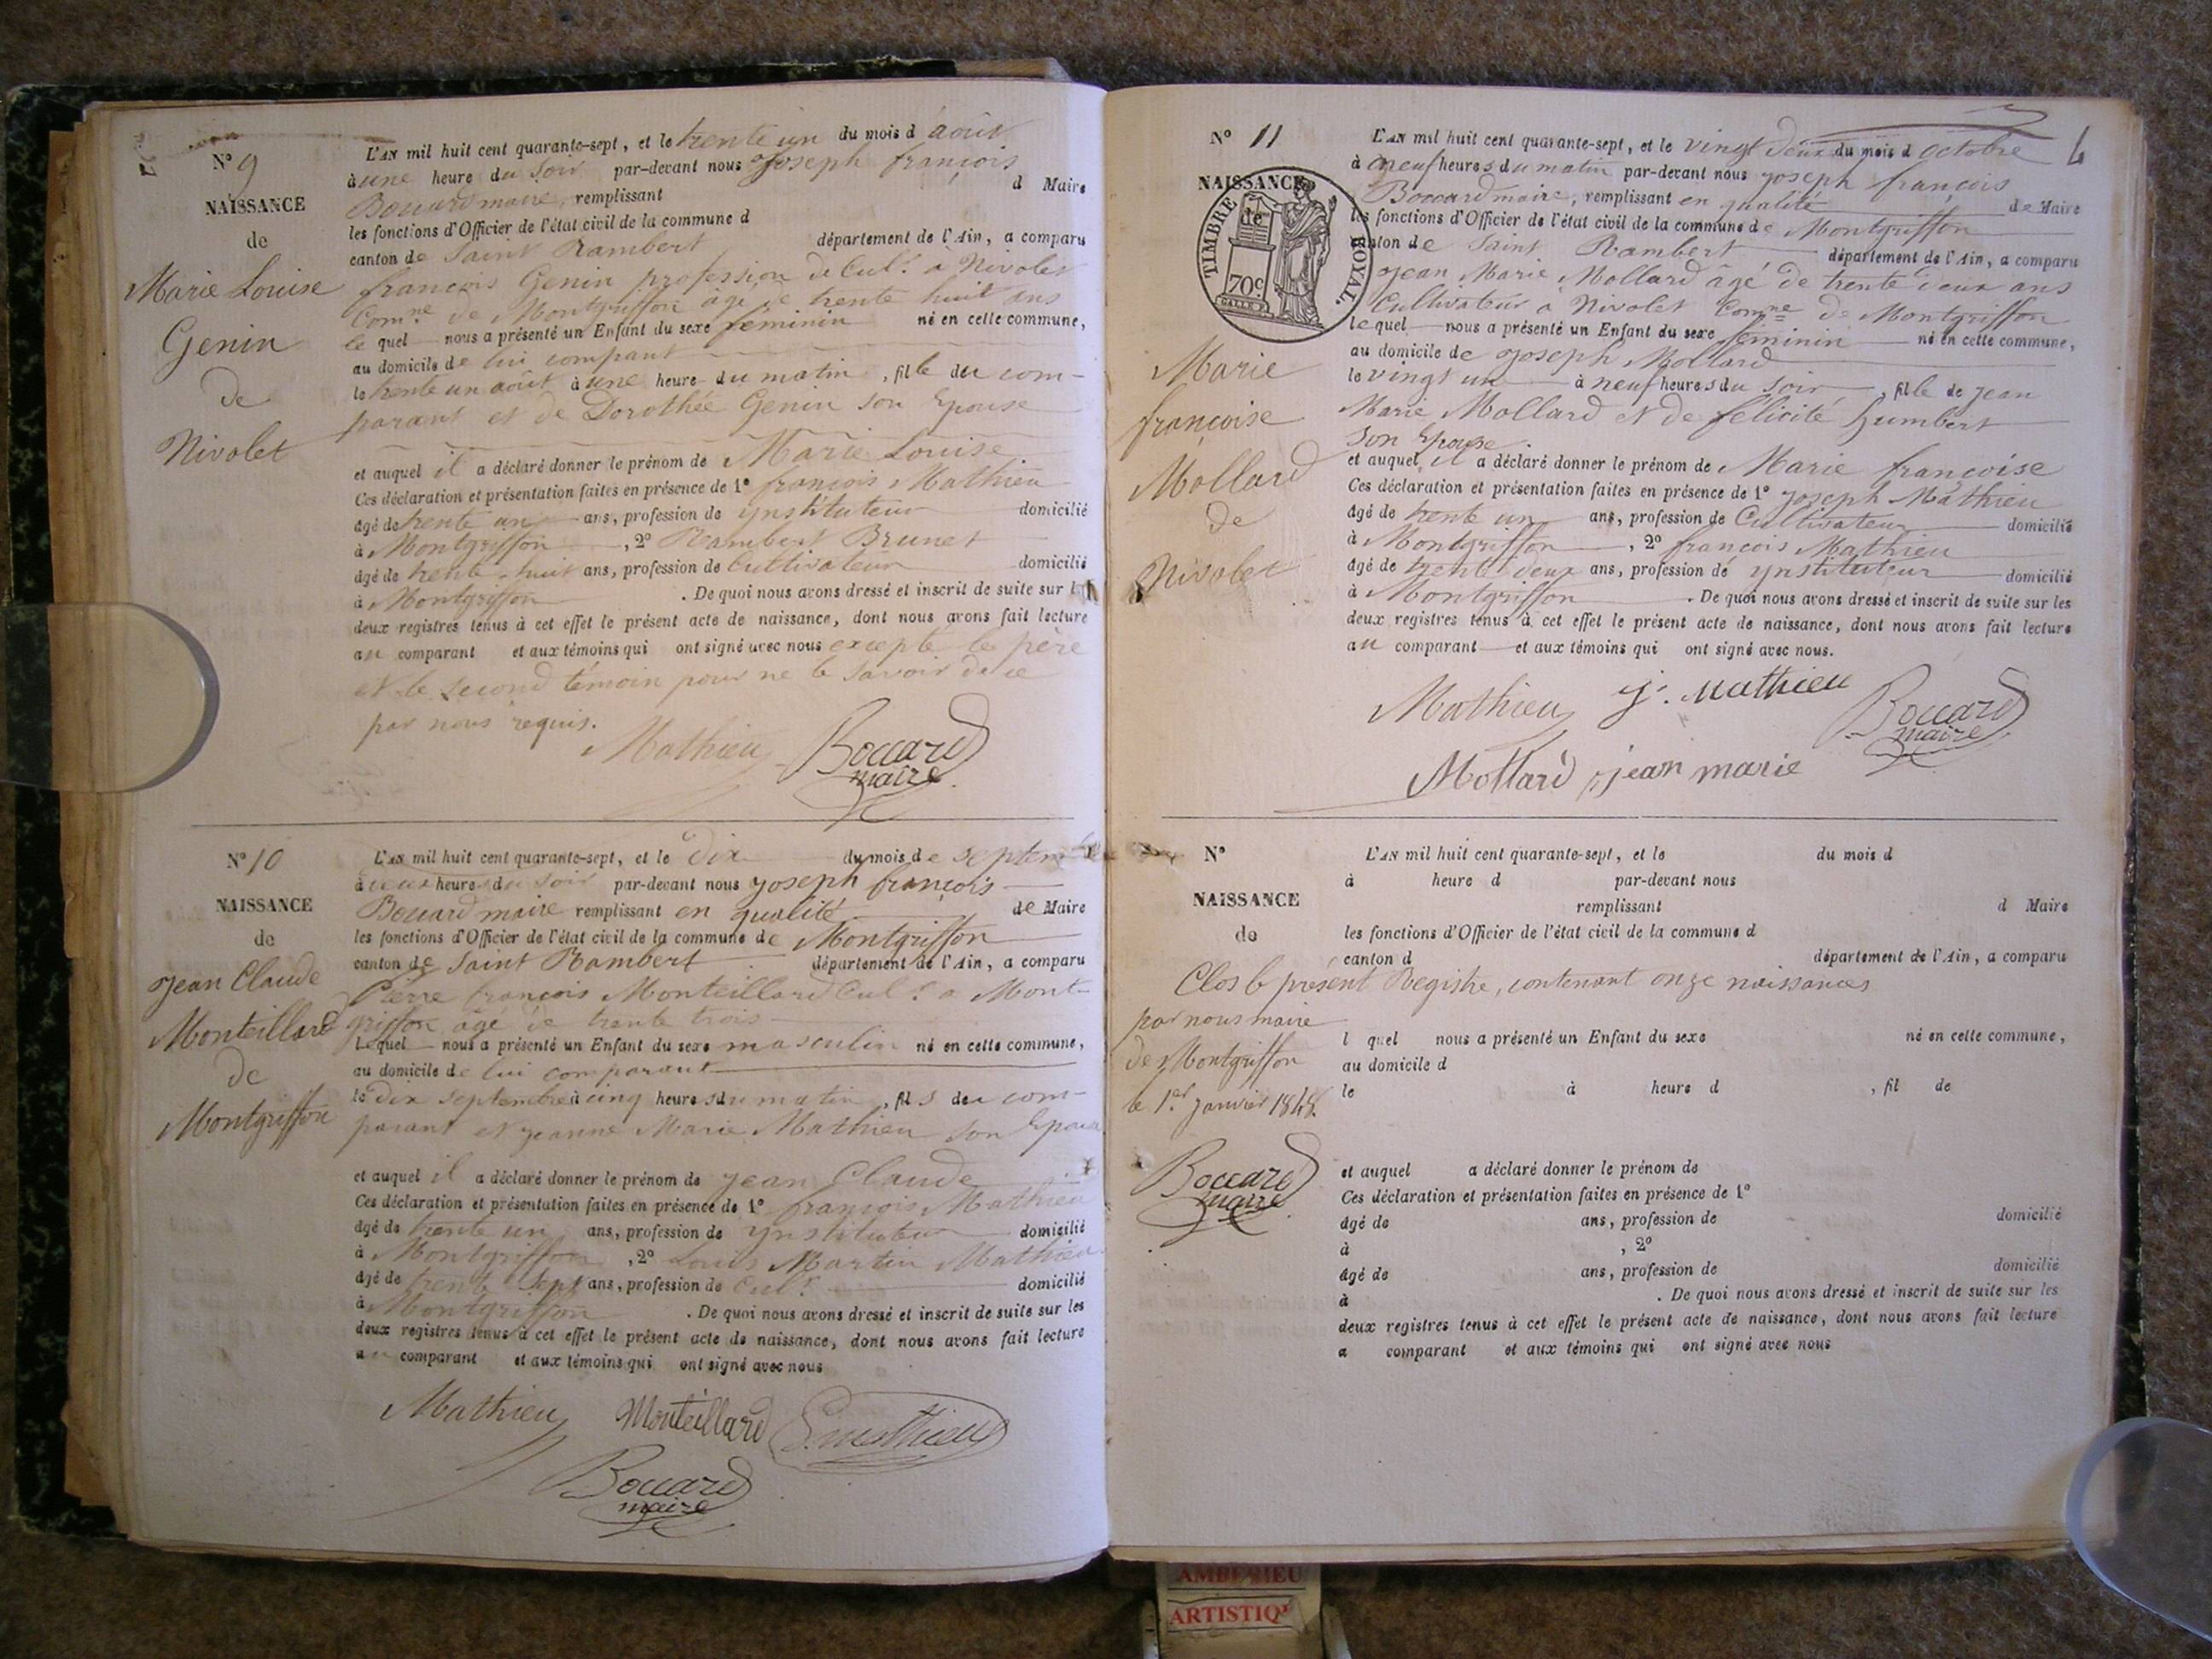 N° 9
NAISSANCE
de
Marie Louise
Genin
de
Nivolet
L'AN mil huit cent quarante-sept, et le trente un du mois d août
à une heure du soir par-devant nous Joseph françois
Boccard maire, remplissant d Maire
les fonctions d'Officier de l'état civil de la commune d
canton de Saint Rambert département de l'Ain, a comparu
françois Genin profession de Cult.r a Nivolet
Com.ne de Montgriffon âgé de trente huit ans
le quel nous a présenté un Enfant du sexe féminin né en cette commune,
au domicile de lui comparant
le trente un août à une heure du matin, fille du com-
parant et de Dorothée Genin son Epouse
et auquel il a déclaré donner le prénom de Marie Louise
Ces déclaration et présentation faites en présence de 1° françois Mathieu
âgé de trente un ans, profession de ynstituteur domicilié
à Montgriffon, 2° Rambert Brunet
âgé de trente-huit ans, profession de Cultivateur domicilié
à Montgriffon. De quoi nous avons dressé et inscrit de suite sur l
deux registres tenus à cet effet le présent acte de naissance, dont nous avons fait lecture
au comparant et aux témoins qui ont signé avec nous excepté le père
et le second témoin pour ne le savoir de ce
par nous requis.
Mathieu Boccard
maire
N° 10
NAISSANCE
de
Jean Claude
Monteillard
de
Montgriffon
L'AN mil huit cent quarante-sept, et le dix du mois de septembre
à deux heures du soir par-devant nous Joseph françois
Boccard maire remplissant en qualité de Maire
les fonctions d'Officier de l'état civil de la commune de Montgriffon
canton de Saint Rambert département de l'Ain, a comparu
Pierre françois Monteillard Cul.r a Mont-
griffon âgé de trente trois
Lequel nous a présenté un Enfant du sexe masculin né en cette commune,
au domicile de lui comparant
le dix septembre à cinq heures du matin, fils du com-
parant et jeanne Marie Mathieu son Epouse
et auquel il a déclaré donner le prénom de jean Claude
Ces déclaration et présentation faites en présence de 1° françois Mathieu
âgé de trente un ans, profession de ynstituteur domicilié
à Montgriffon, 2° Louis Martin Mathieu
âgé de trente sept ans, profession de Cul.r domicilié
à Montgriffon. De quoi nous avons dressé et inscrit de suite sur les
deux registres tenus à cet effet le présent acte de naissance, dont nous avons fait lecture
au comparant et aux témoins qui ont signé avec nous
Mathieu Monteillard Mathieu
Boccard
maire
4
N° 11
NAISSANCE
de
TIMBRE ROYAL
70c
Marie
françoise
Mollard
de
Nivolet
L'AN mil huit cent quarante-sept, et le vingt deux du mois d octobre
à neuf heures du matin par-devant nous joseph françois
Boccard maire, remplissant en qualité de Maire
les fonctions d'Officier de l'état civil de la commune de Montgriffon
canton de Saint Rambert département de l'Ain, a comparu
jean Marie Mollard âgé de trente deux ans
Cultivateur à Nivolet Com.ne de Montgriffon
lequel nous a présenté un Enfant du sexe féminin né en cette commune,
au domicile de joseph Mollard
le vingt un à neuf heures du soir, fille de jean
Marie Mollard et de félicité humbert
son Epouse
et auquel il a déclaré donner le prénom de Marie francoise
Ces déclaration et présentation faites en présence de 1° joseph Mathieu
âgé de trente un ans, profession de Cultivateur domicilié
à Montgriffon, 2° francois Mathieu
âgé de trente deux ans, profession de ynstituteur domicilié
à Montgriffon. De quoi nous avons dressé et inscrit de suite sur les
deux registres tenus à cet effet le présent acte de naissance, dont nous avons fait lecture
au comparant et aux témoins qui ont signé avec nous.
Mathieu j. Mathieu Boccard
maire
Mollard jean marie
N°
NAISSANCE
de
L'AN mil huit cent quarante-sept, et le du mois d
à heure d par-devant nous
remplissant d Maire
les fonctions d'Officier de l'état civil de la commune d
canton d département de l'Ain, a comparu
Clos le présent Registre, contenant onze naissances
par nous maire
de Montgriffon
le 1.er janvier 1848.
Boccard
maire
l quel nous a présenté un Enfant du sexe né en cette commune,
au domicile d
le à heure d, fil de
et auquel a déclaré donner le prénom de
Ces déclaration et présentation faites en présence de 1°
âgé de ans, profession de domicilié
à, 2°
âgé de ans, profession de domicilié
à. De quoi nous avons dressé et inscrit de suite sur les
deux registres tenus à cet effet le présent acte de naissance, dont nous avons fait lecture
a comparant et aux témoins qui ont signé avec nous
AMBERIEU
ARTISTIQ